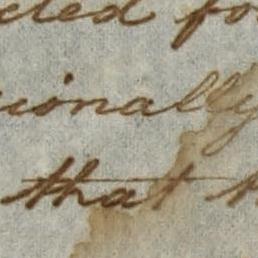 cted fo
ionally
that